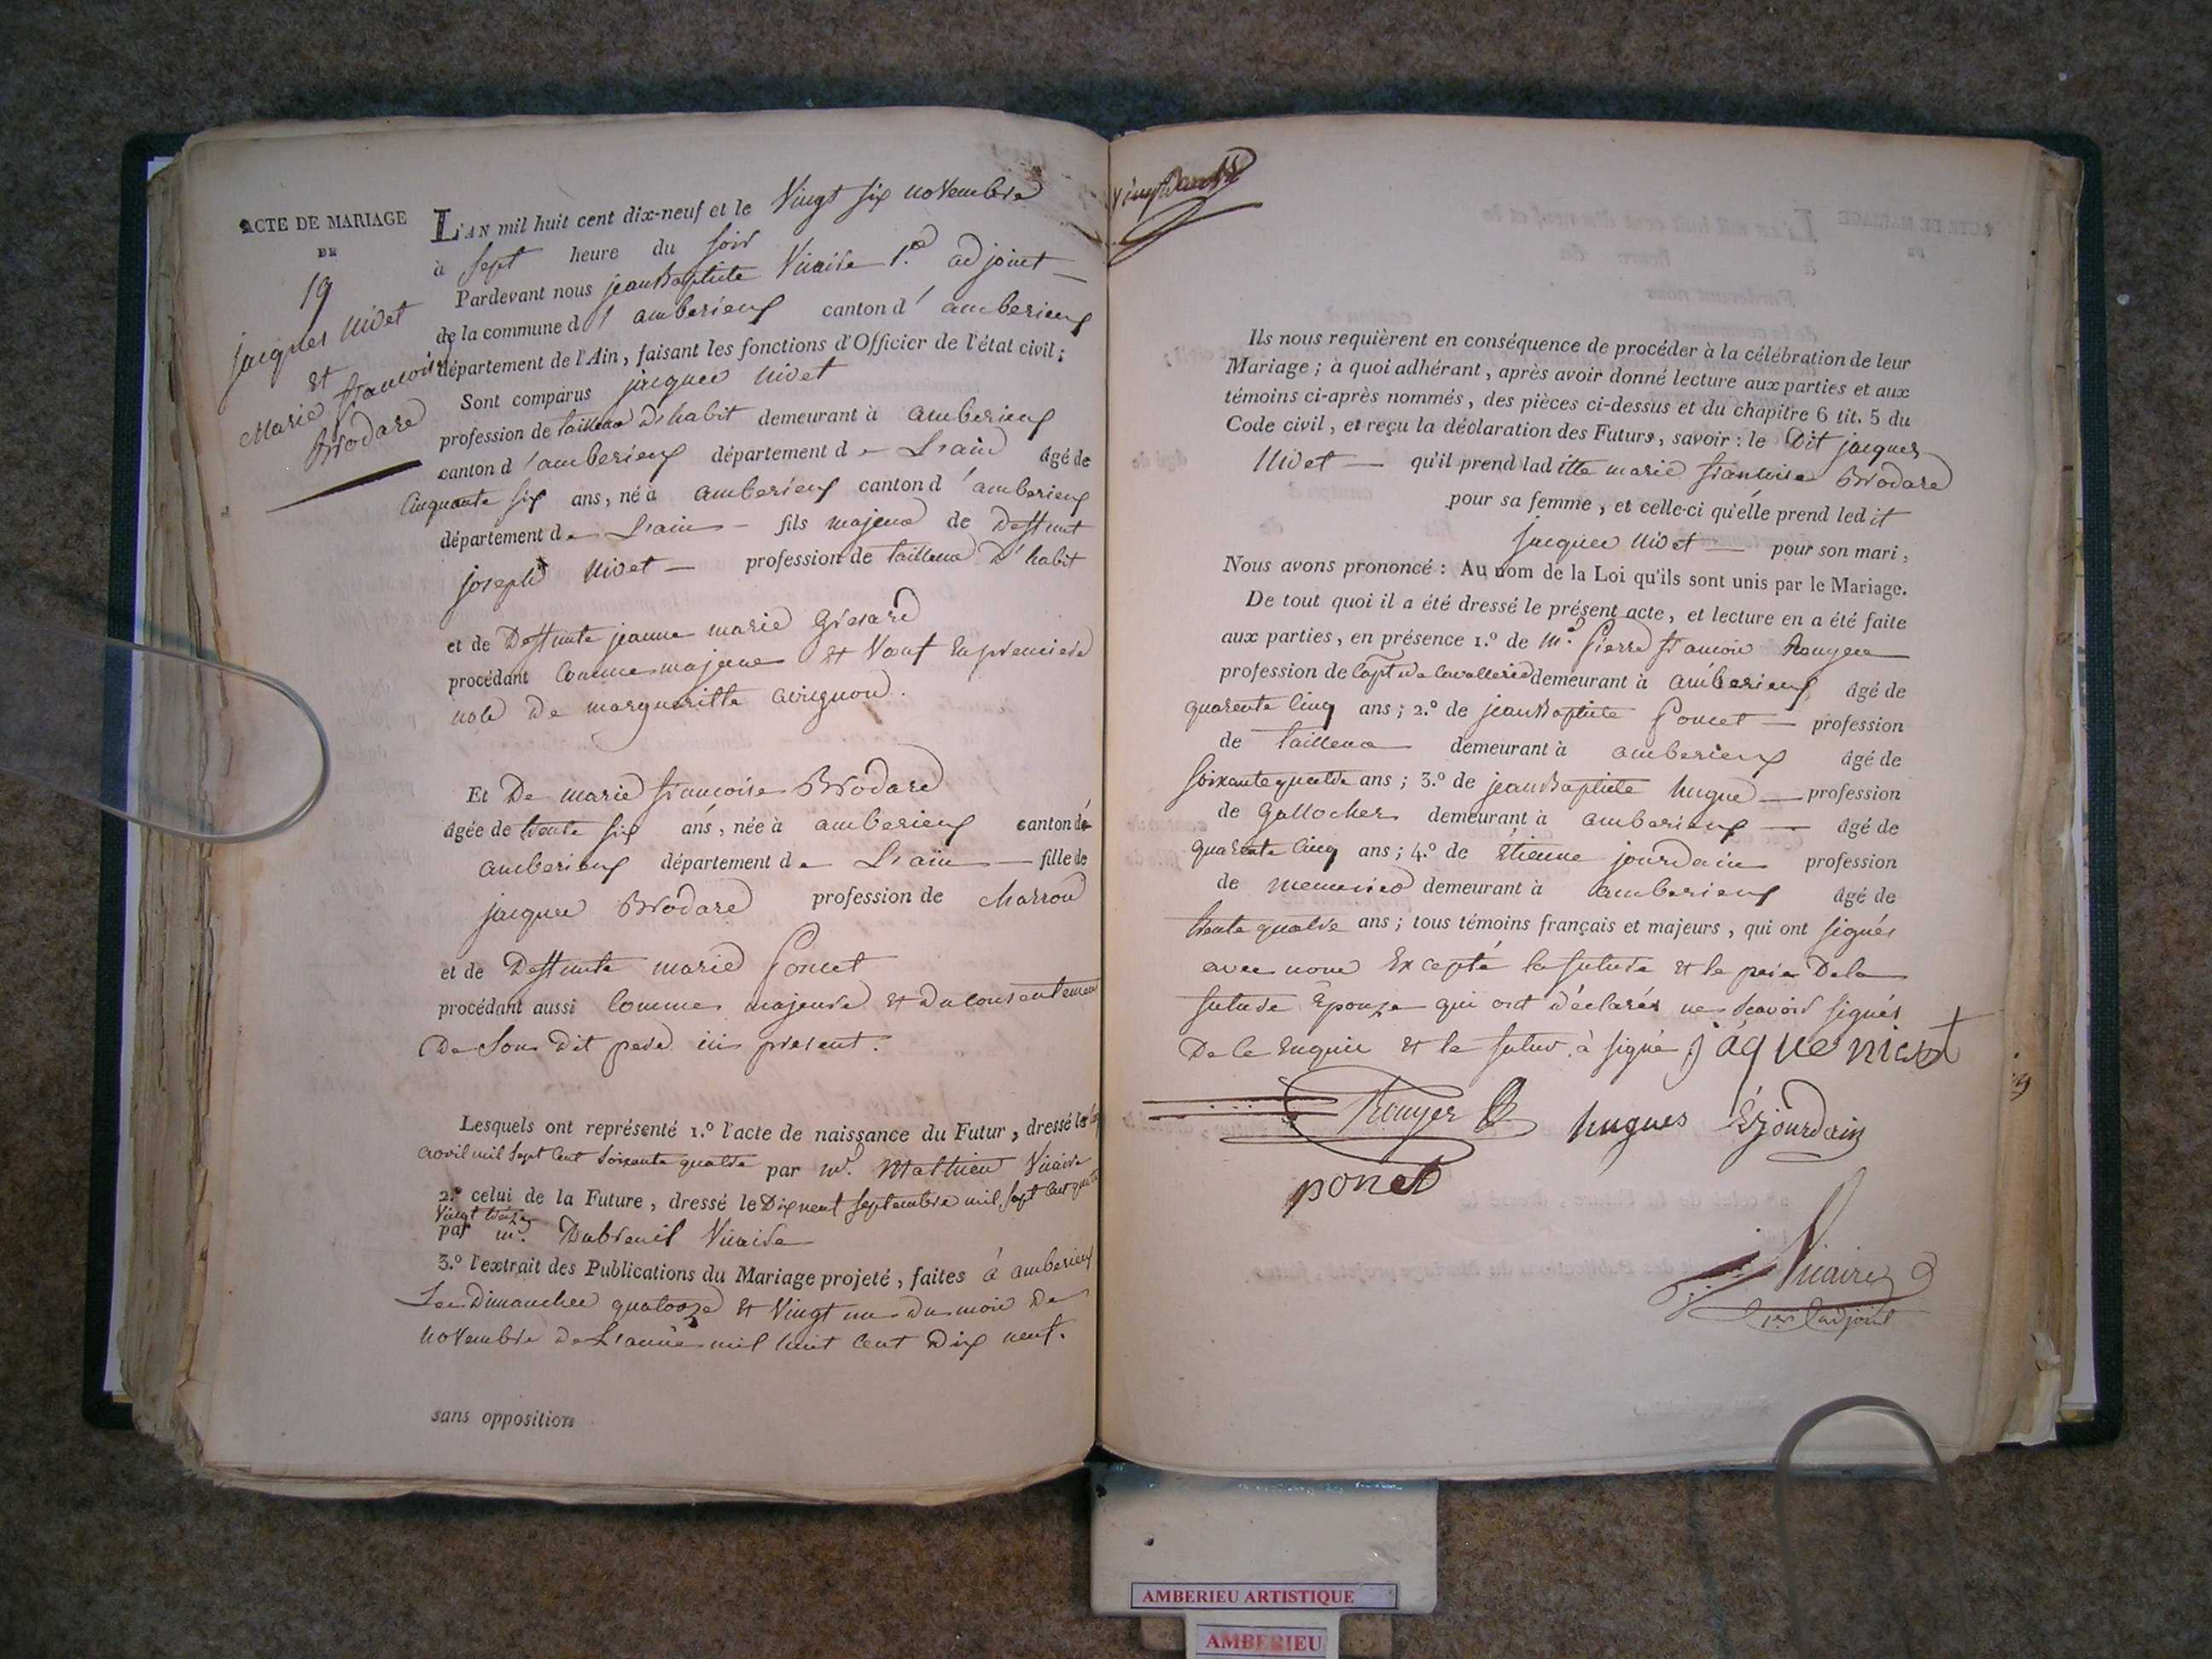 ACTE DE MARIAGE
DE
19
jacques Nivet
et
Marie francoise
Brodard
L'AN mil huit cent dix-neuf et le Vingt six novembre
à sept heure du soir
Pardevant nous jean Baptiste Vicaire 1.er adjoint
de la commune d'amberieux canton d'amberieux
département de l'Ain, faisant les fonctions d'Officier de l'état civil;
Sont comparus jacques Nivet
profession de tailleur D'habit demeurant à amberieux
canton d'amberieux département de L'ain âgé de
Cinquante six ans, né à amberieux canton d'amberieux
département de L'ain fils majeur de Deffunt
joseph Nivet profession de tailleur D'habit
et de Deffunte jeanne marie
procédant comme majeur et Veuf En premiere
de margueritte
Et De marie francoise Brodard
âgée de trente six ans, née à amberieux canton de
amberieux département de L'ain fille de
jacques Brodard profession de Charron
et de Deffunte marie Poncet
procédant aussi comme majeure et du consentement
De Son Dit pere ici present.
Lesquels ont représenté 1.º l'acte de naissance du Futur, dressé le
avril mil sept Cent soixante quatre par mr. Mathieu Vicaire
2.º celui de la Future, dressé le Dix neuf septembre mil sept cent quatre
Vingt
par mr. Dubreuil Vicaire
3.º l'extrait des Publications du Mariage projeté, faites à amberieux
Les Dimanches quatorze et Vingt un du mois De
novembre De L'année mil huit Cent Dix neuf.
sans opposition
Ils nous requièrent en conséquence de procéder à la célébration de leur
Mariage; à quoi adhérant, après avoir donné lecture aux parties et aux
témoins ci-après nommés, des pièces ci-dessus et du chapitre 6 tit. 5 du
Code civil, et reçu la déclaration des Futurs, savoir: le Dit jacques
Nivet qu'il prend laditte marie francoise Brodard
pour sa femme, et celle-ci qu'elle prend ledit
jacques Nivet pour son mari,
Nous avons prononcé: Au nom de la Loi qu'ils sont unis par le Mariage.
De tout quoi il a été dressé le présent acte, et lecture en a été faite
aux parties, en présence 1.º de mr. Pierre francois Rouyer
profession de Capt. de Cavallerie demeurant à amberieux âgé de
quarente Cinq ans; 2.º de jean Baptiste Poncet profession
de tailleur demeurant à amberieux âgé de
soixante quatre ans; 3.º de jean Baptiste hugues profession
de Gallocher demeurant à amberieux âgé de
quarente Cinq ans; 4.º de Etienne jourdain profession
de menuisier demeurant à amberieux âgé de
trente quatre ans; tous témoins français et majeurs, qui ont signés
avec nous Excepté la future et le pere De la
future Epouze qui ont déclarés ne sçavoir signés
De ce Enquis et le futur à signé jáque nivet
Rouyer hugues E jourdain
ponet
Vicaire
1er adjoint
AMBERIEU ARTISTIQUE
AMBERIEU